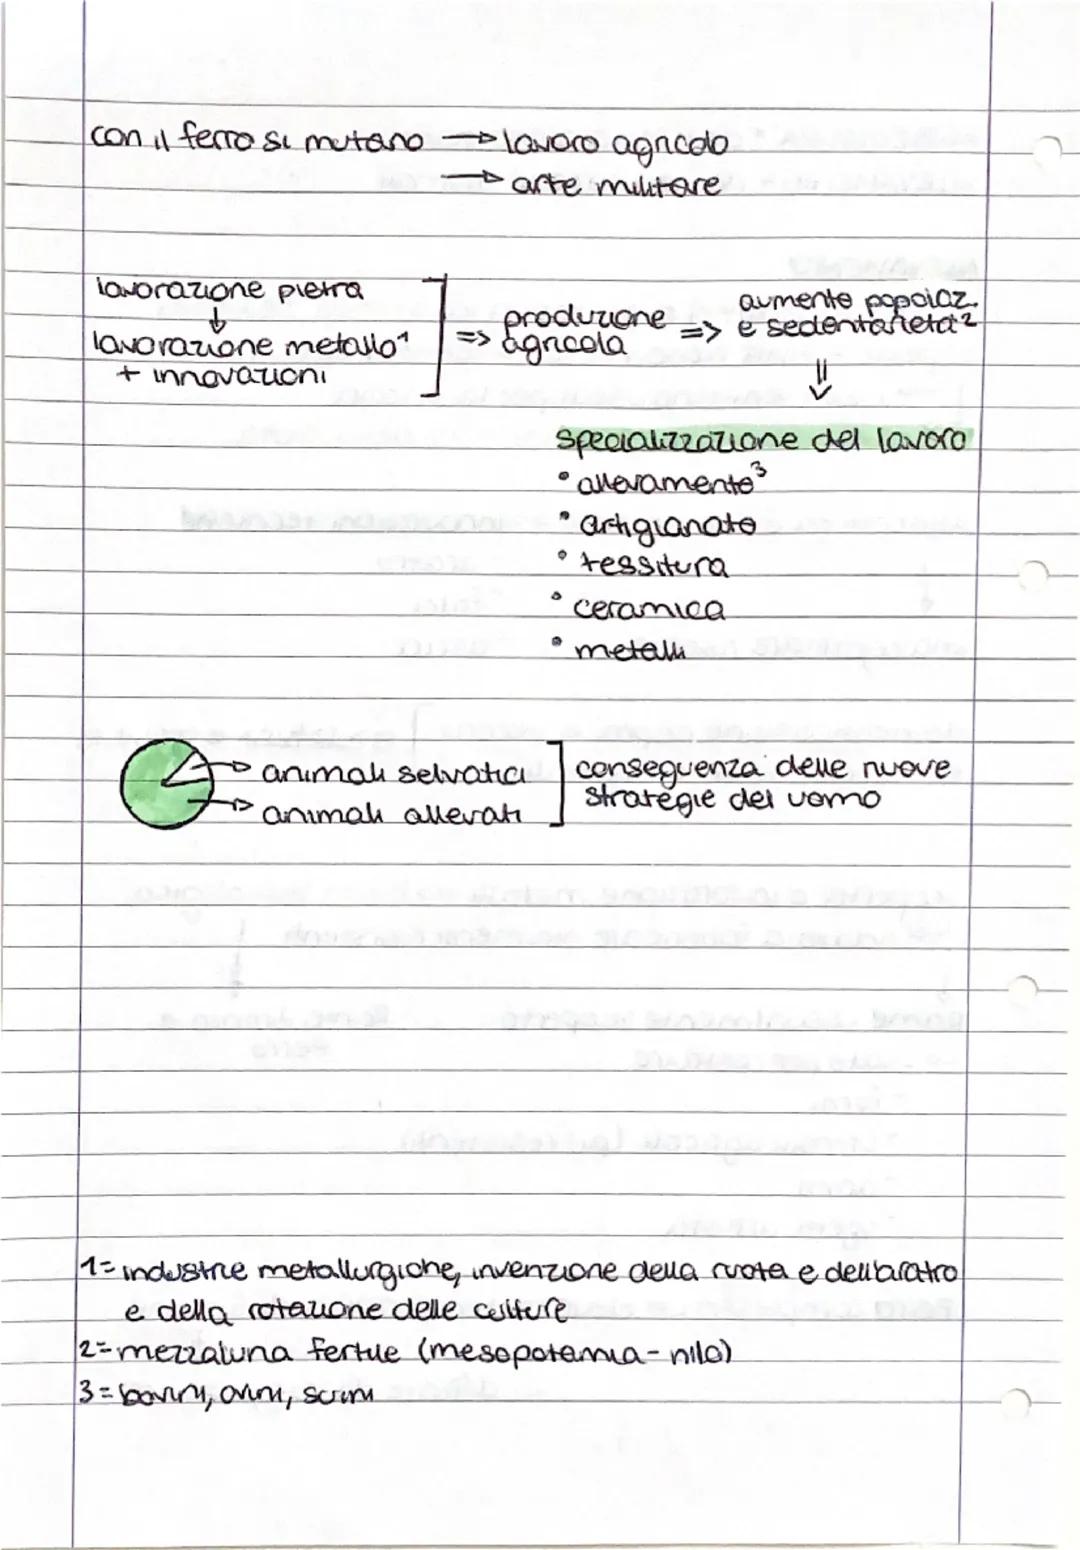 con il ferro si mutano → lavoro agricolo
→ arte militare
lavorazione pietra
↓
lavorazione metallo¹
+ innovazioni
=> produzione agricola
=> aumento popolaz.
e sedentarietà²
⇓
specializzazione del lavoro
• allevamento³
• artigianato
• tessitura
• ceramica
• metalli
→ animali selvatici
→ animali allevati
conseguenza delle nuove
strategie del uomo
1= industrie metallurgiche, invenzione della ruota e dell'aratro
e della rotazione delle culture
2= mezzaluna fertile (mesopotamia - nilo)
3= bovini, ovini, suini